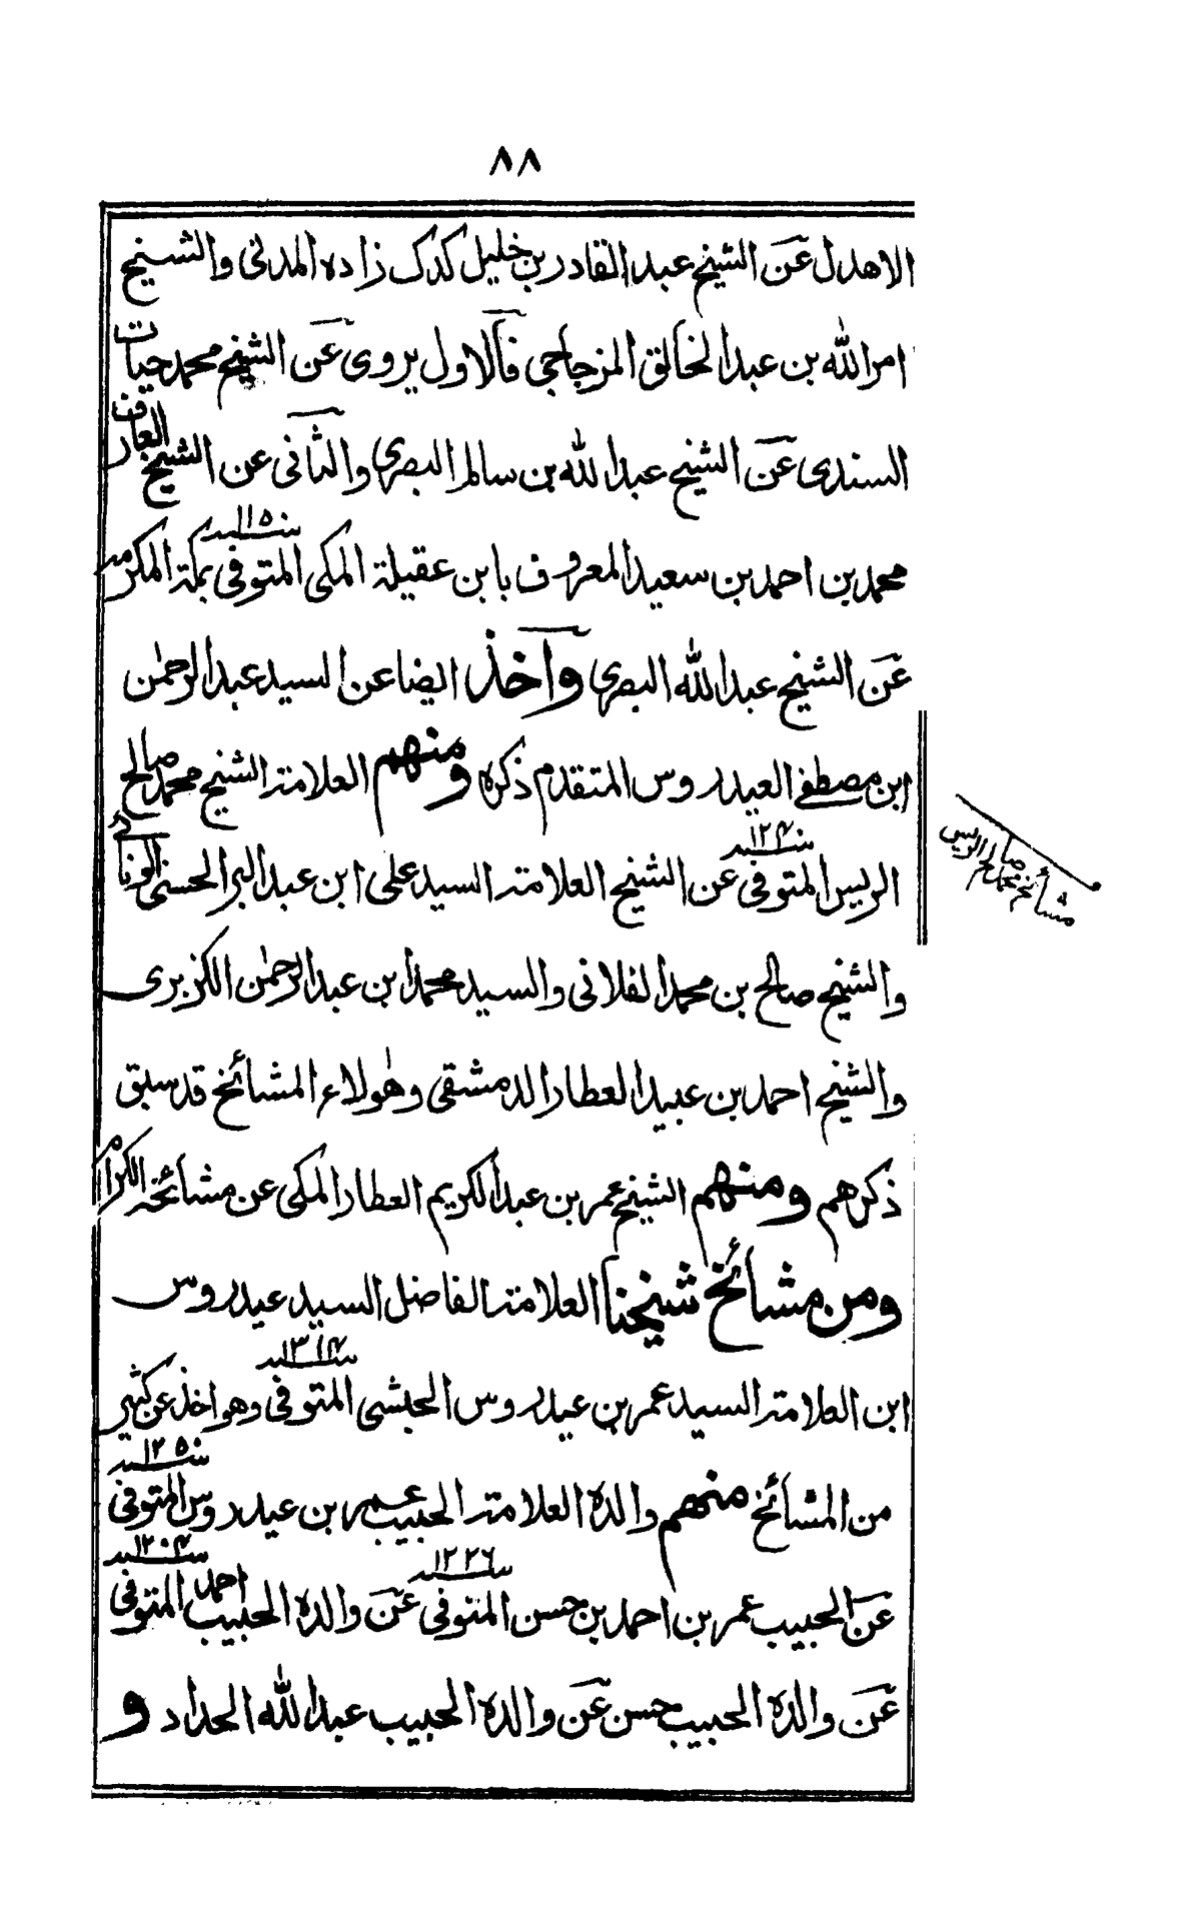 ٨٨
الاهدل عن الشيخ عبد القادر بن خليل كدك زاده المدنى والشيخ
امر الله بن عبد الخالق المزجاجى فالاول يروى عن الشيخ محمد حيات
السندى عن الشيخ عبد الله بن سالم البصرى والثانى عن الشيخ العارف
محمد بن احمد بن سعيد المعروف بابن عقيلة المكى المتوفى بمكة المكرمه سنة ١١٥٠
عن الشيخ عبد الله البصرى وآخذ ايضا عن السيد عبد الرحمٰن
ابن مصطفى العيدروس المتقدم ذكره ومنهم العلامة الشيخ محمد صالح
الريس المتوفى سنة ١٢٤٠ عن الشيخ العلامة السيد على ابن عبد البر الحسنى الونائى
والشيخ صالح بن محمد الفلانى والسيد محمد ابن عبد الرحمٰن الكزبرى
والشيخ احمد بن عبيد العطار الدمشقى وهٰولاء المشائخ قد سبق
ذكرهم ومنهم الشيخ عمر بن عبد الكريم العطار المكى عن مشائخه الكرام
ومن مشائخ شيخنا العلامة الفاضل السيد عيدروس
ابن العلامة السيد عمر بن عيدروس الحبشى المتوفى سنة ١٣١٤ وهو اخذ عن كثير
من المشائخ منهم والده العلامة الحبيب عمر بن عيدروس المتوفى سنة ١٢٥٠
عن الحبيب عمر بن احمد بن حسن المتوفى سنة ١٢٢٦ عن والده الحبيب احمد المتوفى سنة ١٢٠٤
عن والده الحبيب حسن عن والده الحبيب عبد الله الحداد و
مشائخ محمد صالح الريس